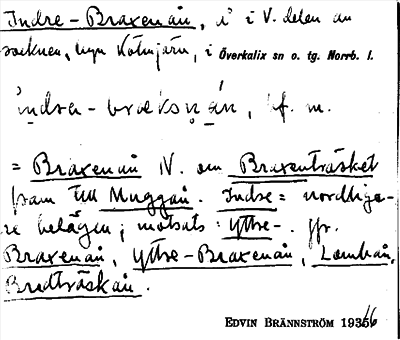 Indre-Braxenån, å i V. delen av
socknen, byn Kölmjärv, i Överkalix sn o. tg. Norrb. l.
indra-bræksn̥án, bf. m.
= Braxenån N. om Braxenträsket
fram till Muggån. Indre = nordliga-
re belägen; motsats: Yttre-. Jfr.
Braxenån, Yttre-Braxenån, Lambån,
Bredträskån.
EDVIN BRÄNNSTRÖM 1936